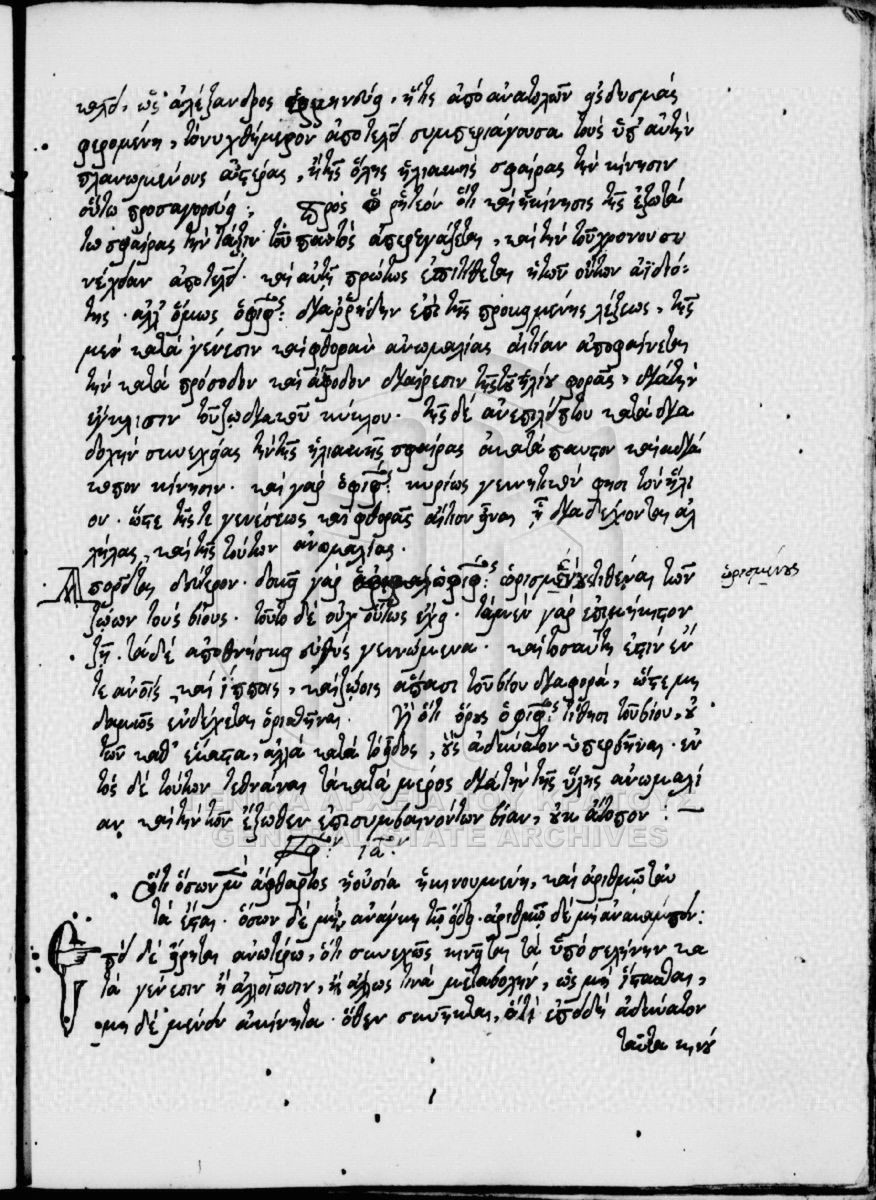 καλεῖ, ὡς ἀλέξανδρος ἑρμηνεύει, ἥτις ἀπὸ ἀνατολῶν εἰς δυσμὰς
φερομένη, τὸ νυχθήμερον ἀποτελεῖ συμπεριάγουσα τοὺς ὑπ' αὐτὴν
πλανωμένους ἀστέρας, ἢ τῆς ὅλης ἡλιακῆς σφαίρας τὴν κίνησιν
οὕτω προσαγορεύει: πρὸς ὃ ῥητέον ὅτι καὶ ἡ κίνησις τῆς ἐξωτά
τω σφαίρας τὴν τάξιν τοῦ παντὸς ἀπεργάζεται, καὶ τὴν τοῦ χρόνου συ
νέχειαν ἀποτελεῖ. καὶ αὐτῇ πρώτως ἐπιτίθεται ἡ τῶν ὄντων ἀϊδιό-
της. ἀλλ' ὅμως ὁ φιφος: διαρρήδην ἐπὶ τῆς προκειμένης λέξεως, τῆς
μὲν κατὰ γένεσιν καὶ φθορὰν ἀνωμαλίας αἰτίαν ἀποφαίνεται
τὴν κατὰ πρόσοδον καὶ ἄφοδον διαίρεσιν τῆς τοῦ ἡλίου φορᾶς, διὰ τὴν
ἔγκλισιν τοῦ ζωδιακοῦ κύκλου. τῆς δὲ ἀνεπιλείπτου κατὰ δια
δοχὴν συνεχείας τὴν τῆς ἡλιακῆς σφαίρας ἀκατάπαυστον καὶ ἀδιά
κοπον κίνησιν. καὶ γὰρ ὁ φιφος: κυρίως γεννητικόν φησι τὸν ἥλι
ον. ὥστε τῆς τε γενέσεως καὶ φθορᾶς αἴτιον εἶναι ᾗ διαδέχονται ἀλ
λήλας, καὶ τῆς τούτων ἀνωμαλίας.
Ἀπορεῖται δεύτερον. δοκεῖ γὰρ ὁ φιφος: ὡρισμένους τιθέναι τῶν
ὡρισμένους
ζώων τοὺς βίους. τοῦτο δὲ οὐχ οὕτως ἔχει. τὰ μὲν γὰρ ἐπιμήκιστον
ζῇ. τὰ δὲ ἀποθνήσκει εὐθὺς γεννώμενα. καὶ τοσαύτη ἐστὶν ἔν
τε ἀνοις καὶ ἵπποις, καὶ ζώοις ἅπασι τοῦ βίου διαφορά, ὥστε μη
δαμῶς ἐνδέχεται ὁρισθῆναι. ἢ ὅτι ὅρους ὁ φιφος: τίθησι τοῦ βίου, οὐ
τῶν καθ' ἕκαστα, ἀλλὰ κατὰ τὸ εἶδος, οὓς ἀδύνατον ὑπερβῆναι. ἐν
τὸς δὲ τούτων τεθνάναι τὰ κατὰ μέρος διὰ τὴν τῆς ὕλης ἀνωμαλί
αν καὶ τὴν τῶν ἔξωθεν ἐπισυμβαινόντων βίαν, οὐκ ἄτοπον:—
ια:
Ὅτι ὅσων μὲν ἄφθαρτος ἡ οὐσία ἡ κινουμένη, καὶ ἀριθμῷ ταὐ
τά ἐσται. ὅσων δὲ μή, ἀνάγκη τῷ εἴδει. ἀριθμῷ δὲ μὴ ἀνακάμπτειν:
δὲ εἴρηται ἀνωτέρω, ὅτι συνεχῶς κινεῖται τὰ ὑπὸ σελήνην κα
τὰ γένεσιν ἢ ἀλλοίωσιν, ἢ ἄλλως τινὰ μεταβολήν, ὡς μὴ ἵστασθαι,
μηδὲ μένειν ἀκίνητα. ὅθεν συνῆκται, ὅτι ἐπειδὴ ἀδύνατον
ταῦτα κινού